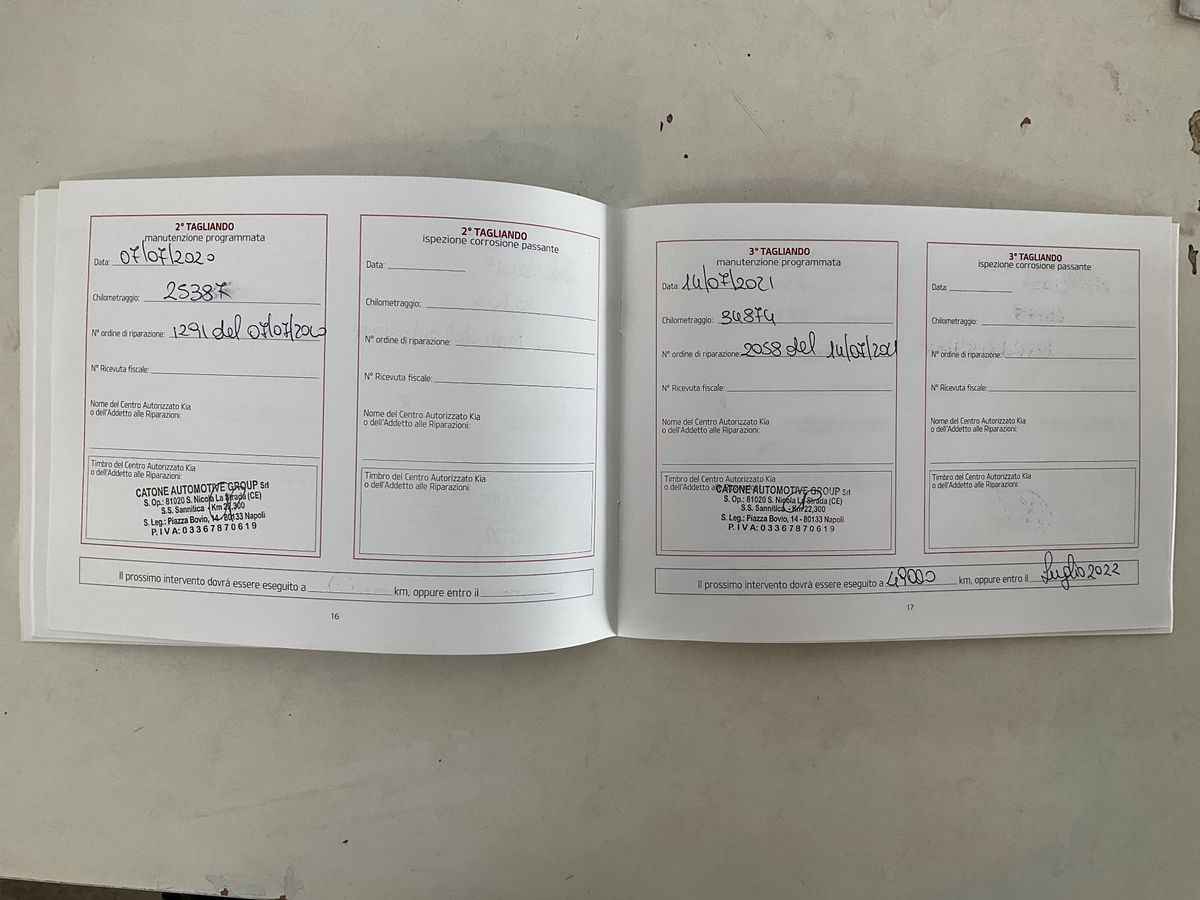 2° TAGLIANDO
manutenzione programmata
Data: 07/07/2020
Chilometraggio: 25387
N° ordine di riparazione: 1291 del 07/07/2020
N° Ricevuta fiscale:
Nome del Centro Autorizzato Kia
o dell'Addetto alle Riparazioni:
Timbro del Centro Autorizzato Kia
o dell'Addetto alle Riparazioni:
CATONE AUTOMOTIVE GROUP Srl
S. Op.: 81020 S. Nicola La Strada (CE)
S.S. Sannitica - Km 22,300
S. Leg.: Piazza Bovio, 14 - 80133 Napoli
P. IVA: 03367870619
2° TAGLIANDO
ispezione corrosione passante
Data:
Chilometraggio:
N° ordine di riparazione:
N° Ricevuta fiscale:
Nome del Centro Autorizzato Kia
o dell'Addetto alle Riparazioni:
Timbro del Centro Autorizzato Kia
o dell'Addetto alle Riparazioni:
Il prossimo intervento dovrà essere eseguito a km, oppure entro il
16
3° TAGLIANDO
manutenzione programmata
Data 14/07/2021
Chilometraggio: 34874
N° ordine di riparazione: 2058 del 14/07/2021
N° Ricevuta fiscale:
Nome del Centro Autorizzato Kia
o dell'Addetto alle Riparazioni:
Timbro del Centro Autorizzato Kia
o dell'Addetto alle Riparazioni:
CATONE AUTOMOTIVE GROUP Srl
S. Op.: 81020 S. Nicola La Strada (CE)
S.S. Sannitica - Km 22,300
S. Leg.: Piazza Bovio, 14 - 80133 Napoli
P. IVA: 03367870619
3° TAGLIANDO
ispezione corrosione passante
Data:
Chilometraggio:
N° ordine di riparazione:
N° Ricevuta fiscale:
Nome del Centro Autorizzato Kia
o dell'Addetto alle Riparazioni:
Timbro del Centro Autorizzato Kia
o dell'Addetto alle Riparazioni:
Il prossimo intervento dovrà essere eseguito a 49000 km, oppure entro il Luglio 2022
17